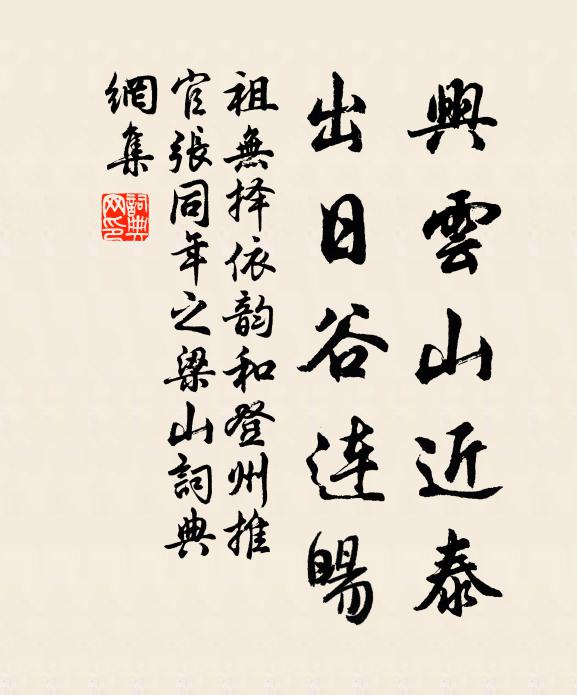 興雲山近泰
出日谷连暘
祖無择依韵和登州推
官張同年之梁山詞典
網集
詞典
网印